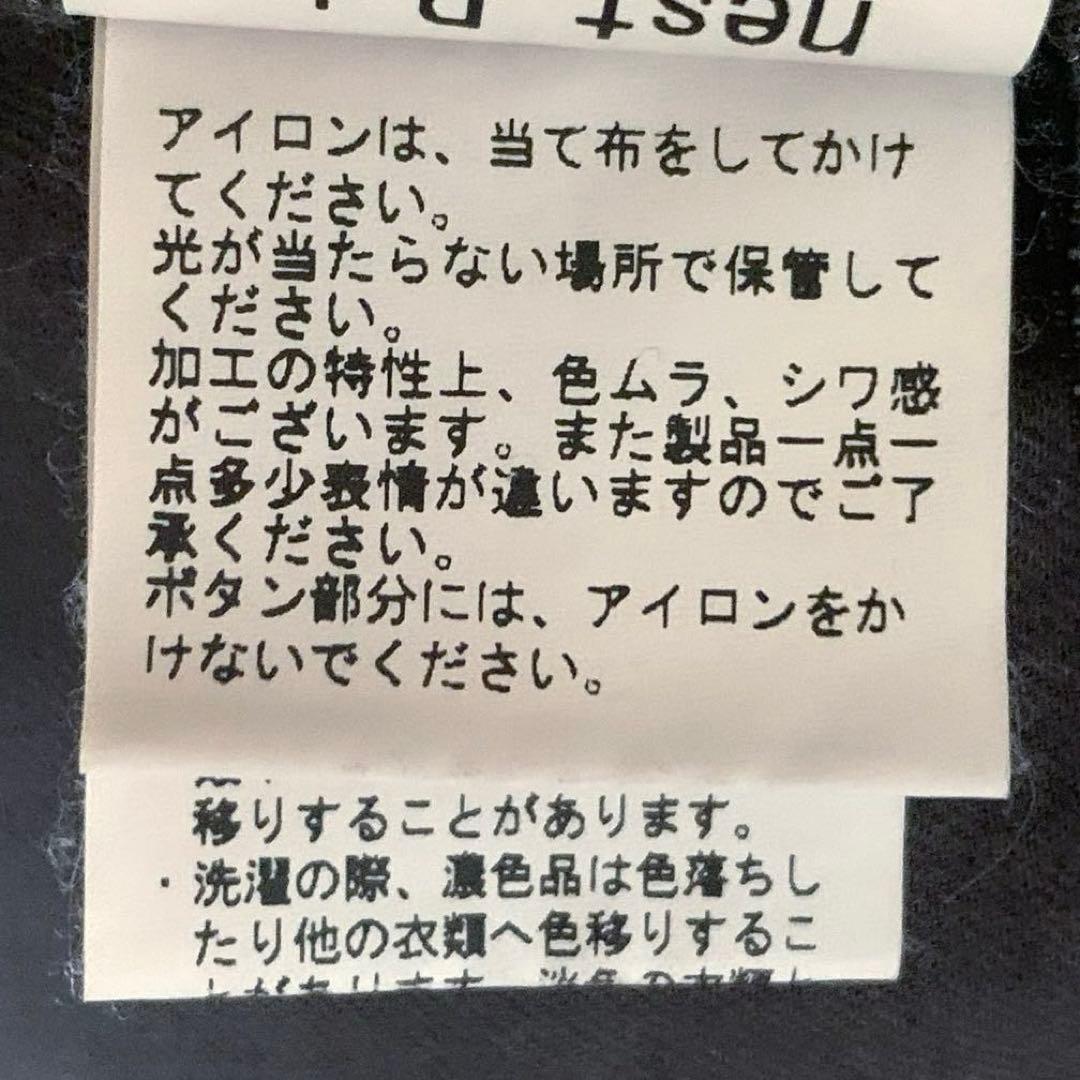 nest
アイロンは、当て布をしてかけ
てください。
光が当たらない場所で保管して
ください。
加工の特性上、色ムラ、シワ感
がございます。また製品一点一
点多少表情が違いますのでご了
承ください。
ボタン部分には、アイロンをか
けないでください。
移りすることがあります。
・洗濯の際、濃色品は色落ちし
たり他の衣類へ色移りするこ
とがあります